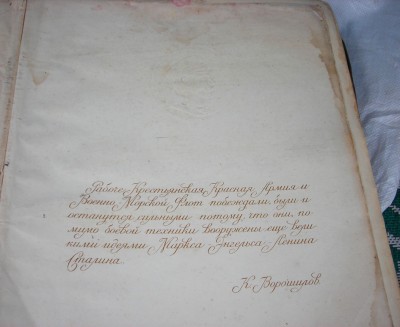 Рабоче Крестьянская Красная Армия и
Военно Морской Флот побеждали, были и
останутся сильными потому, что они, по-
мимо боевой техники вооружены ещё вели
кими идеями Маркса Энгельса Ленина
Сталина
К. Ворошилов